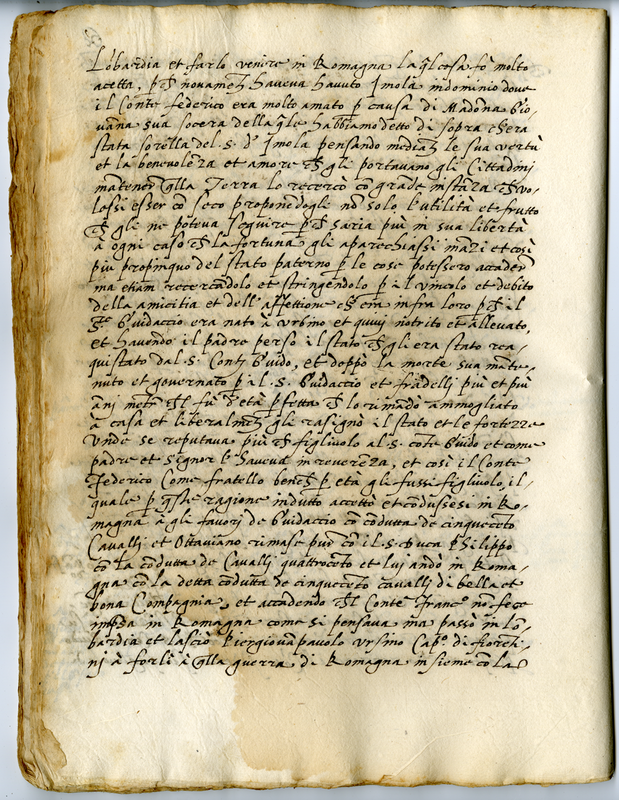 Lõbardia et farlo venire in Romagna la q̃l cosa fò molto
acetta, p̃ch̃ novamẽt haveva havuto Imola in dominio dove
il Conte federico era molto amato p causa di Madõna Gio-
vãna sua socera della q̃le habbiamo detto di sopra ch'era
stata sorella del .S. d'Imola pensando mediãt le sua vertù
et la benevolẽza et amore ch̃ gli portavano gli Cittadini
mãtener q̃lla Terra lo recercò cõ grãde instãza ch̃ vo-
lassi esser cõ seco proponẽdogli nõ solo l'utilità et frutto
ch̃ gli ne poteva seguire p̃ch̃ saria più in sua libertà
à ogni caso ch̃ la fortuna gli aparechiassi inãzi et così
più propinquo del stato paterno p le cose potessero accader
ma etiam recercãdolo et stringẽdolo p il vincolo et debito
della amicitia et dell'affettione ch̃ era infra loro p̃ch̃ il
Guidaccio era nato à Urbino et quivi notrito et allevato,
et havendo il padre perso il stato ch̃ gli era stato rea-
quistato dal .S. Conte Guido, et doppò la morte sua mãte-
nuto et governato p il .S. Guidaccio et fradelli più et più
ãni fù d'età p̃fetta ch̃ lo rimãdò ammogliato
à casa et liberalmẽt gli rasignò il stato et le fortezze
Unde se reputava più ch̃ figliuolo al .S. cõte Guido et come
padre et signor l'haveva in reverẽza, et così il Conte
Federico Come fratello bench̃ p età gli fussi figliuolo, il
quale p q̃ste ragione indutto accettò et cõdussesi in Ro-
magna à gli favori de Guidaccio cõ cõdutta de cinquecẽto
Cavalli et Ottaviano rimase pur cõ il .S. Duca Philippo
cõ la cõdutta de Cavalli quattrocẽto et lui andò in Roma-
gna cõ la detta cõdutta de cinquecẽto cavalli di bella et
bona Compagnia, et accadendo ch̃l Conte Franc.º nõ fece
imp̃sa in Romagna come si pensava ma passò in Lõ-
bardia et lasciò Piergiovãpavolo Ursino Cap.º di fiorẽti-
ni à forlì à q̃lla guerra di Romagna insieme cõ la